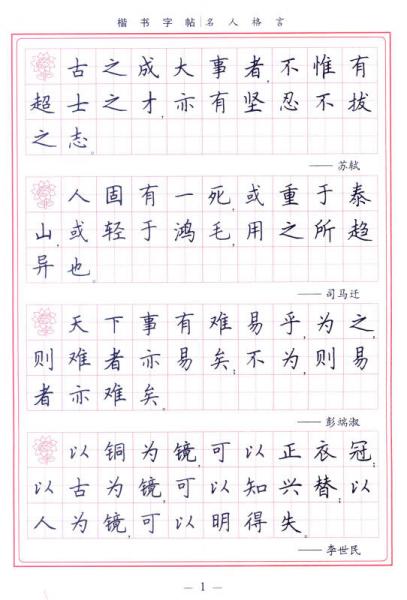 楷书字帖|名人格言
古之成大事者,不惟有
超士之才,亦有坚忍不拔
之志。
——苏轼
人固有一死,或重于泰
山,或轻于鸿毛,用之所趋
异也。
——司马迁
天下事有难易乎,为之,
则难者亦易矣;不为,则易
者亦难矣。
——彭端淑
以铜为镜,可以正衣冠;
以古为镜,可以知兴替;以
人为镜,可以明得失。
——李世民
— 1 —